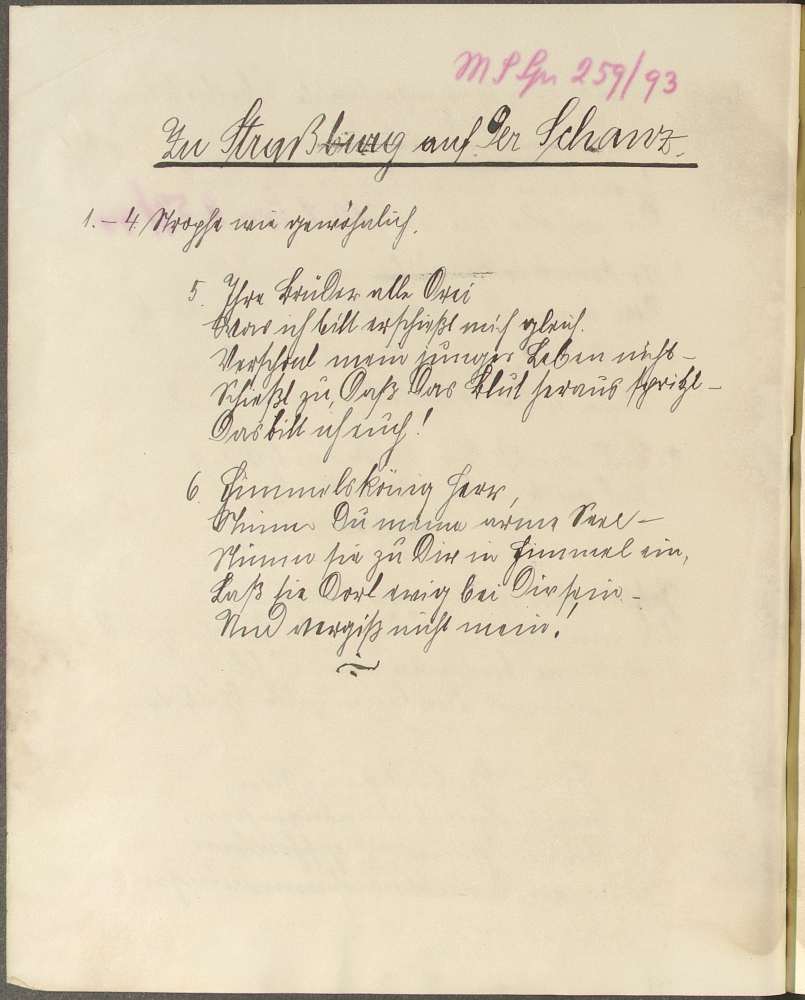 259/93
Zu Straßburg auf der Schanz.
1.–4. Strophe wie gewöhnlich.
5. Ihre Brüder alle Drei
Was ich bitt erschießt mich gleich.
Verschont mein junges Leben nicht –
Schießt zu, daß das Blut heraus spritzt –
Das bitt ich euch!
6. Himmelskönig Herr,
Nimm Du meine arme Seel –
Nimm sie zu Dir in Himmel ein,
Laß sie dort ewig bei Dir sein –
Und vergiß nicht mein!